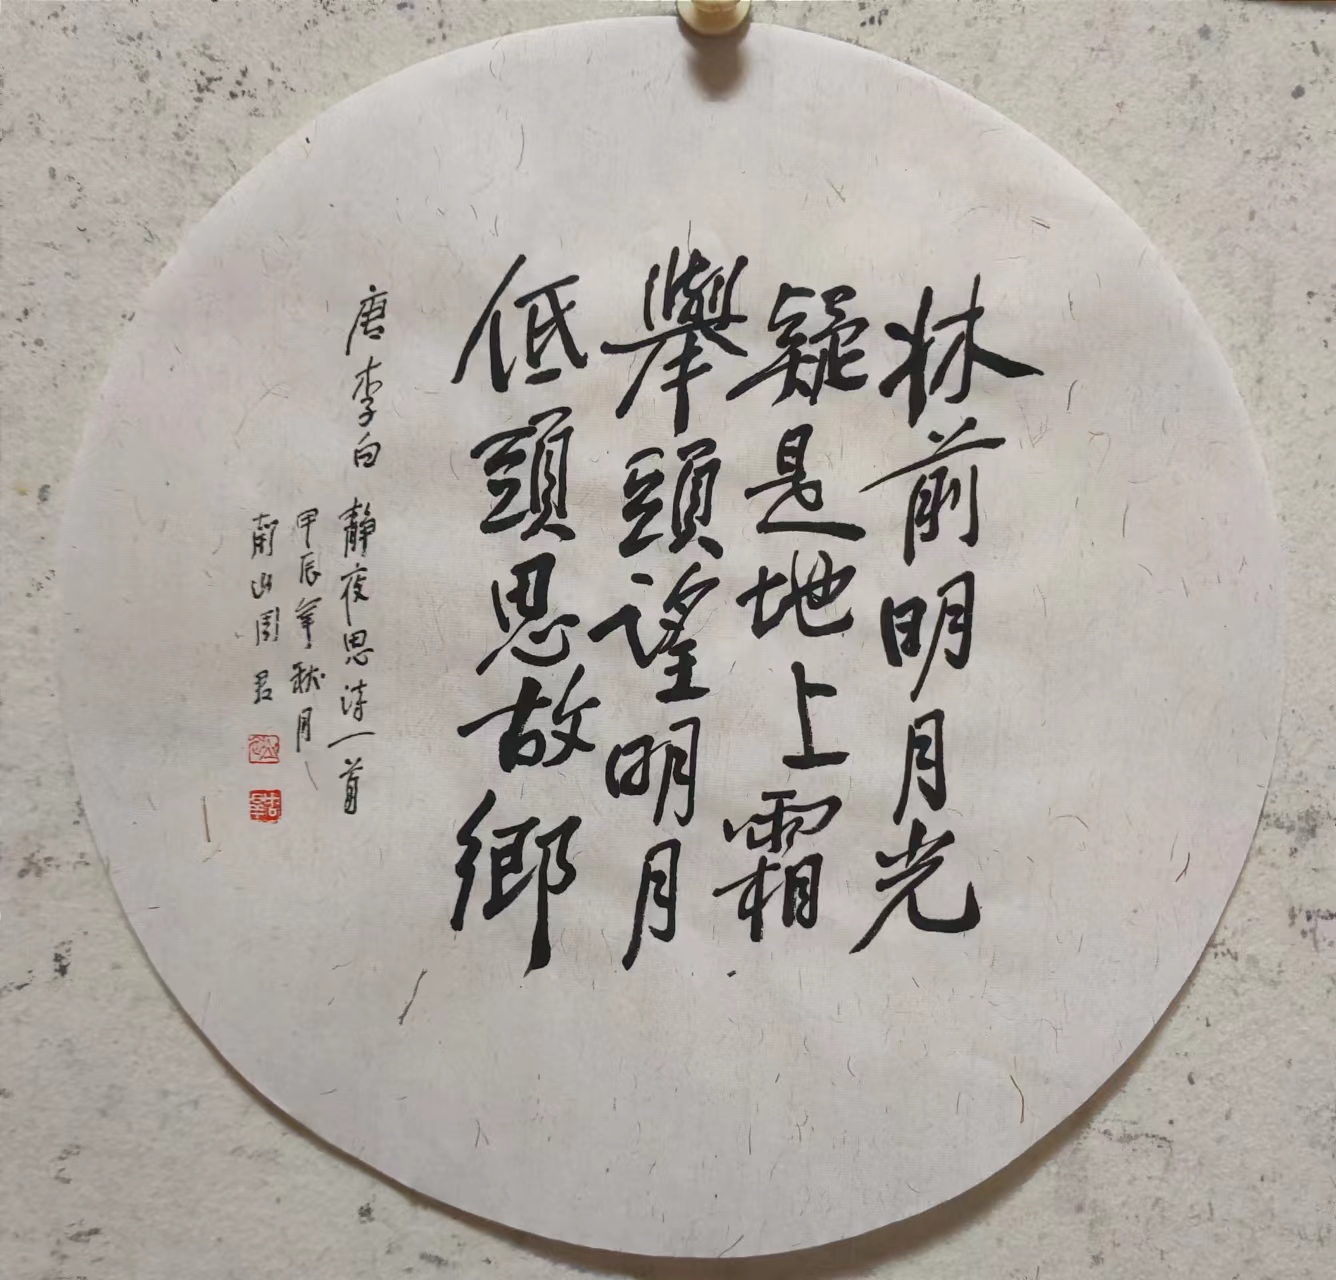 牀前明月光
疑是地上霜
舉頭望明月
低頭思故鄉
唐李白 靜夜思 詩一首
甲辰年秋月
南山周君